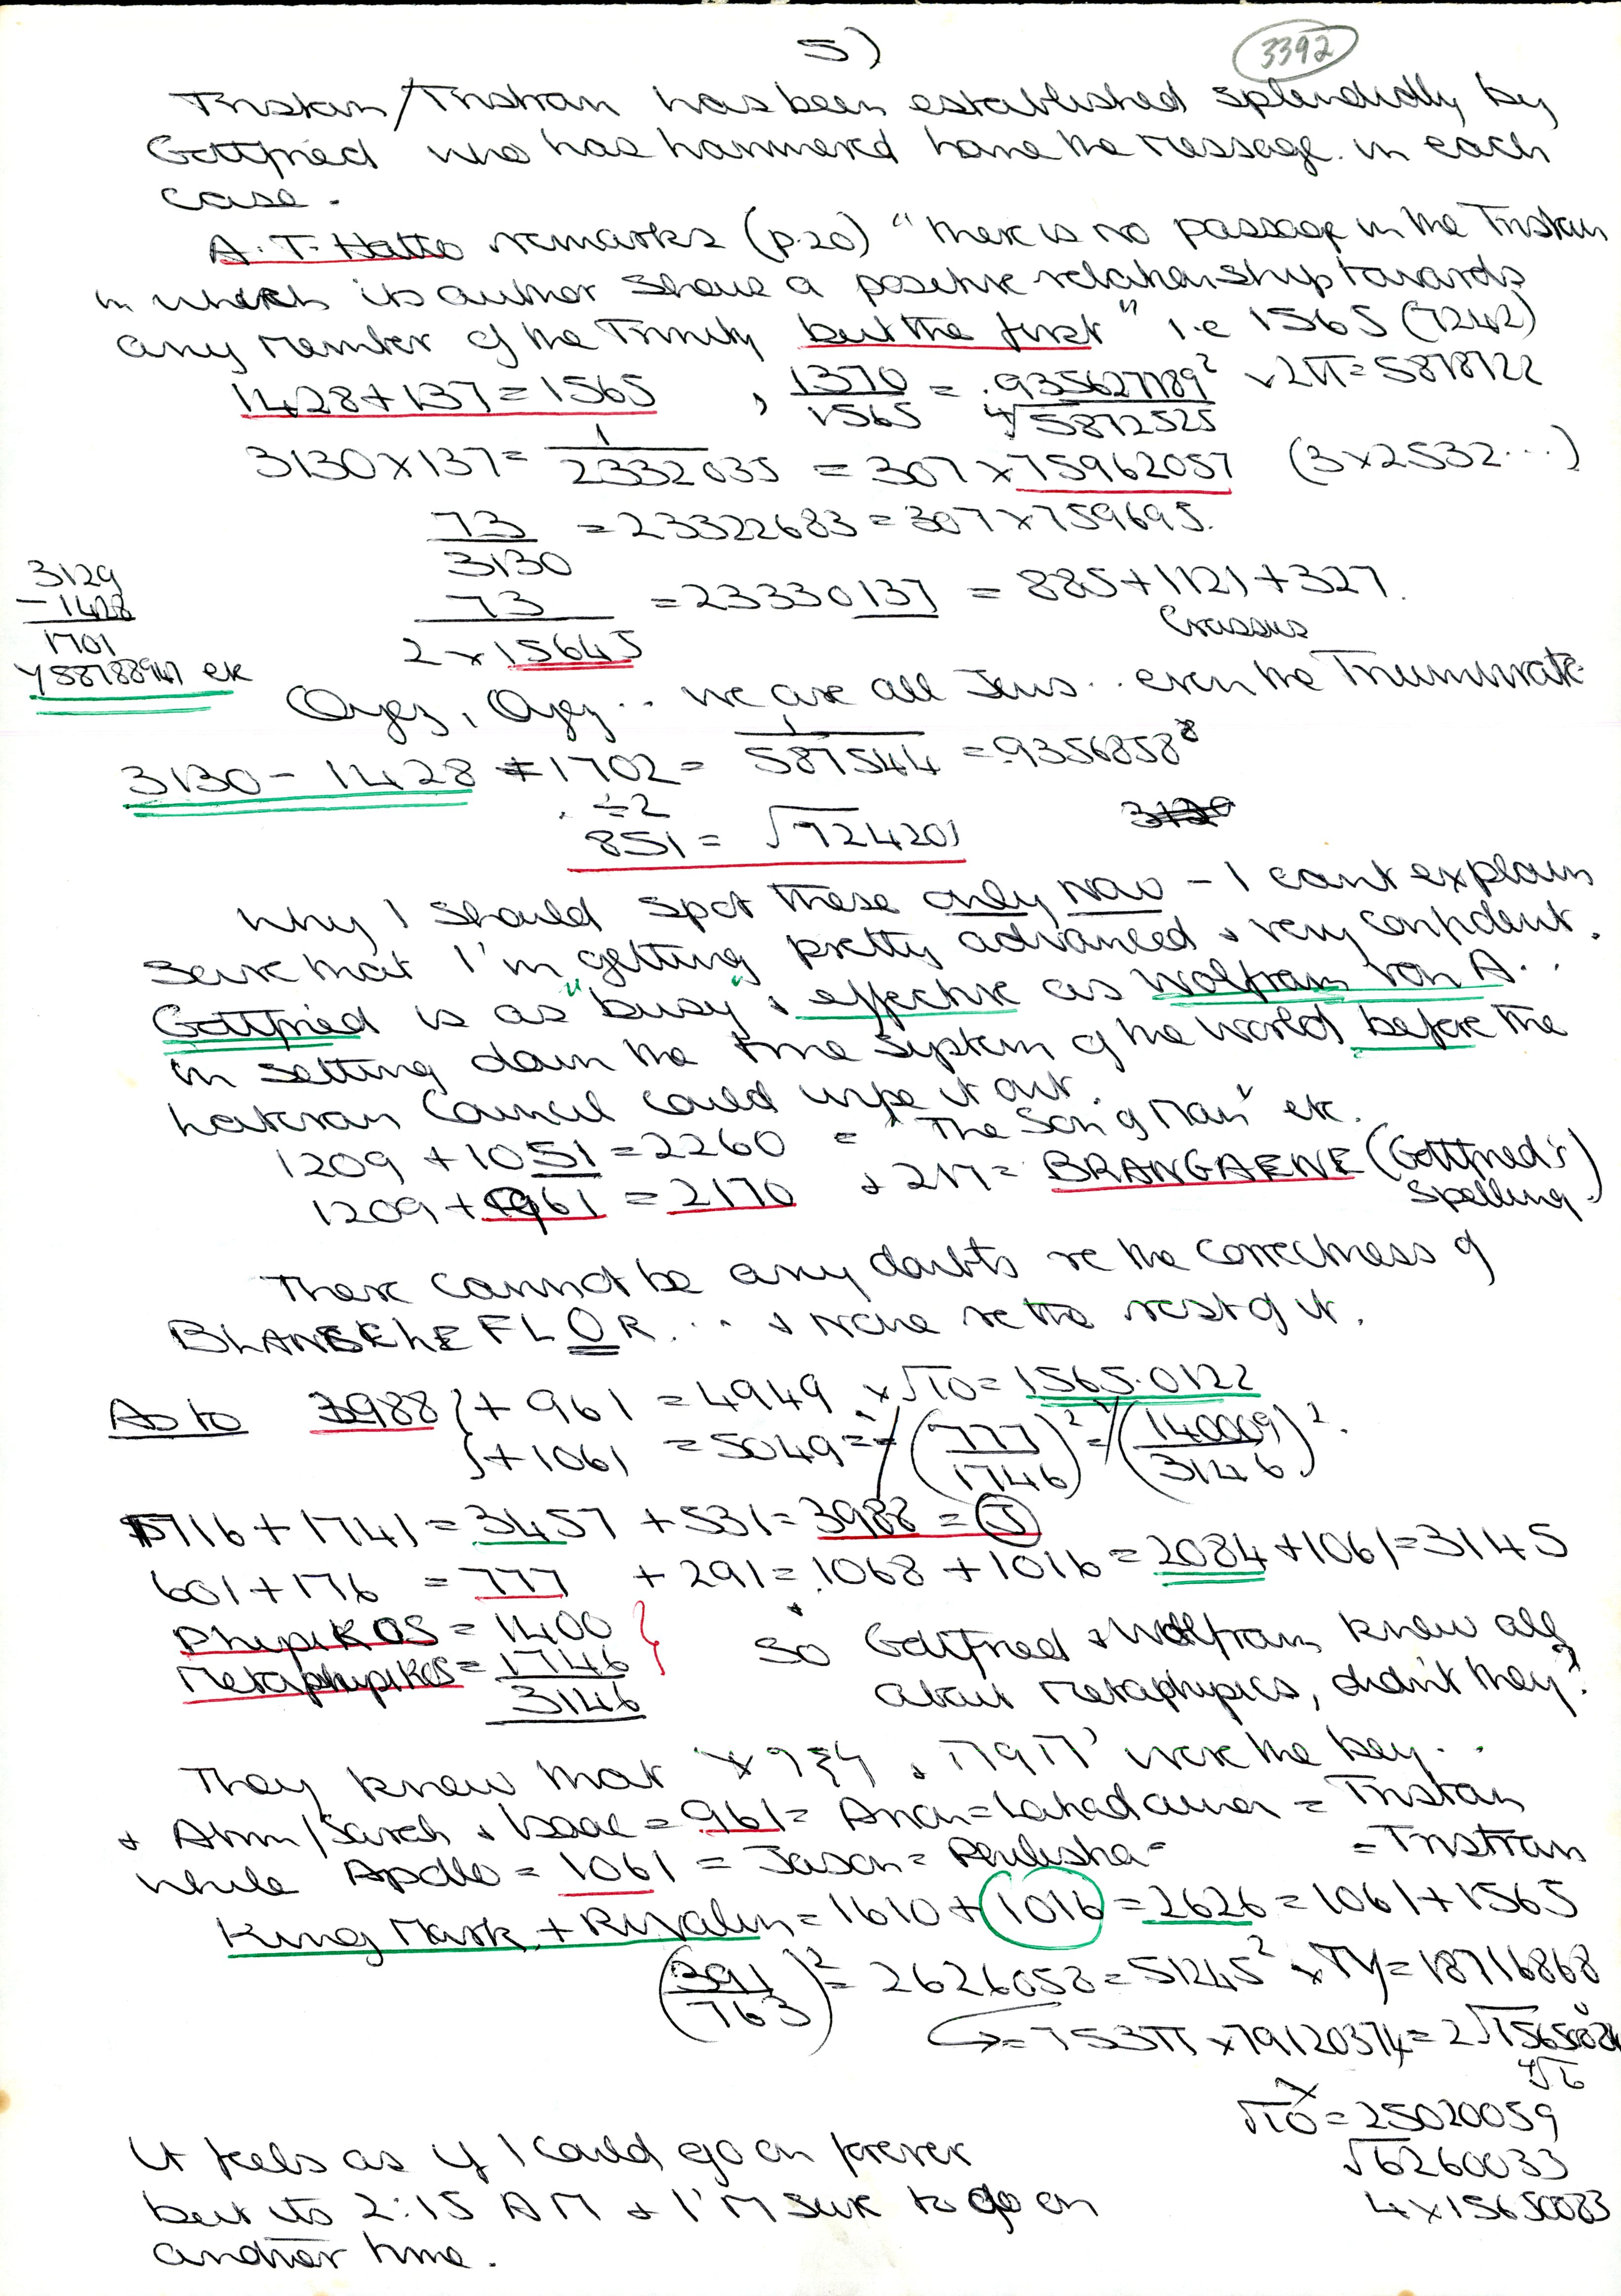 5)
3392
Tristan/Tristran has been established splendidly by
Gottfried who has hammered home the message. in each
case.
A.T. Hatto remarks (p.20) "there is no passage in the Tristan
in which its author shows a positive relationship towards
any member of the Trinity but the first" i.e 1565 (7242)
1428+137=1565 , 1370/1565 = .935627189² ×2π=5878722
∜5872525
3130×137= 1/2332035 = 307×75962057 (3×2532...)
73/3130 =23322683=307×759695.
73/2×15645 =23330137 = 885+1121+327.
Crassus
3129
-1428
1701
√58788947 etc
Oyez, Oyez.. we are all Jews.. even the Triumvirate
3130-1428 =1702= 1/587544 =.9356858⁸
÷2
851= √724201
Why I should spot these only now - I can't explain
save that I'm getting pretty advanced & very confident.
Gottfried is as "busy" & effective as Wolfram von A..
in setting down the time system of the world before the
Lateran Council could wipe it out.
1209 +1051=2260 = "The Son of Man" etc.
1209+961 = 2170 & 217= BRANGAENE (Gottfried's
spelling.)
There cannot be any doubts re the correctness of
BLANSCHEFLOR... & none re the rest of it.
As to 3988 }+ 961 =4949 ×√10= 1565.0122
}+1061 =5049= (777/1746)² = (140009/3146)².
1716+1741=3457 +531=3988=J
601+176 =777 +291=1068+1016=2084+1061=3145
PhysiKOS=1400
MetaphysiKOS=1746
3146
So Gottfried & Wolfram knew all
about metaphysics, didn't they?
They knew that were the key..
& Abram/Sarah & Isaac=961= = Tristan
while Apollo=1061=Jason= =Tristran
King Mark + Rivalin=1610+1016=2626=1061+1565
(391/763)²=2626058=51245² =18716868
=753π×79120374=2√
√10=25020059
√6260033
4×15650083
It feels as if I could go on forever
but its 2:15 AM & I'm sure to go on
another time.